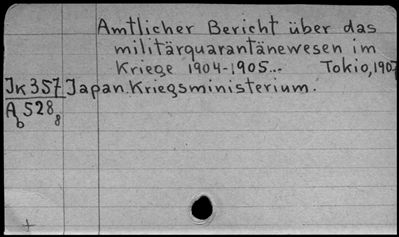 Amtlicher Bericht über das
militärquarantänewesen im
Kriege 1904-1905... Tokio, 1907
Jk357 Japan. Kriegsministerium.
Ab5288
+